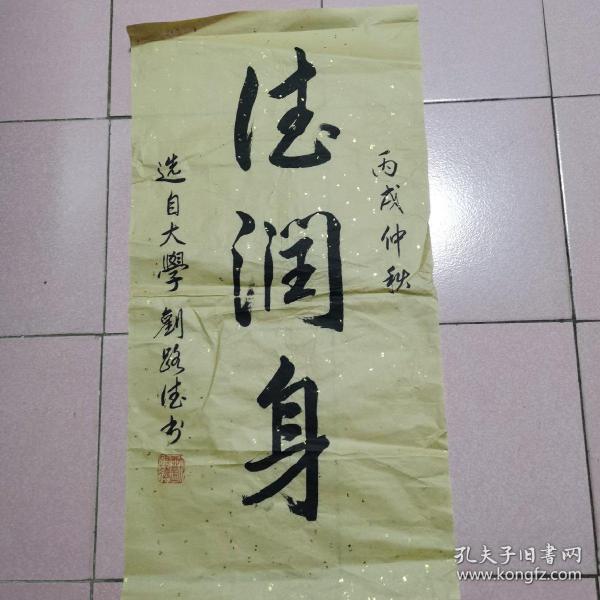 丙戌仲秋
德润身
选自大學 劉路德书
孔夫子旧書网
www.kongfz.com